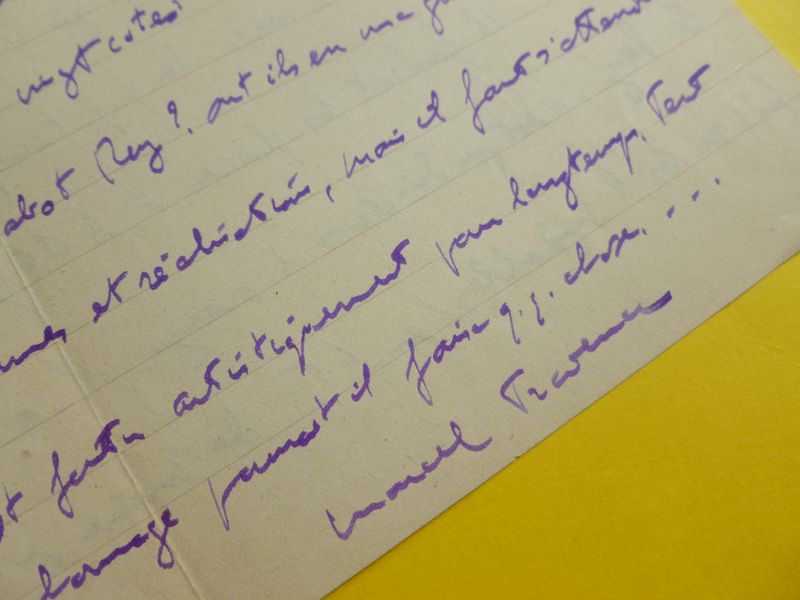 vingt cotés
abot Rey?, ont ils en me
et réalisation, mais il faut s'attendre
foutu artistiquement pour longtemps. Tant
dommage pourrait il faire q.q. chose. ...
Marcel